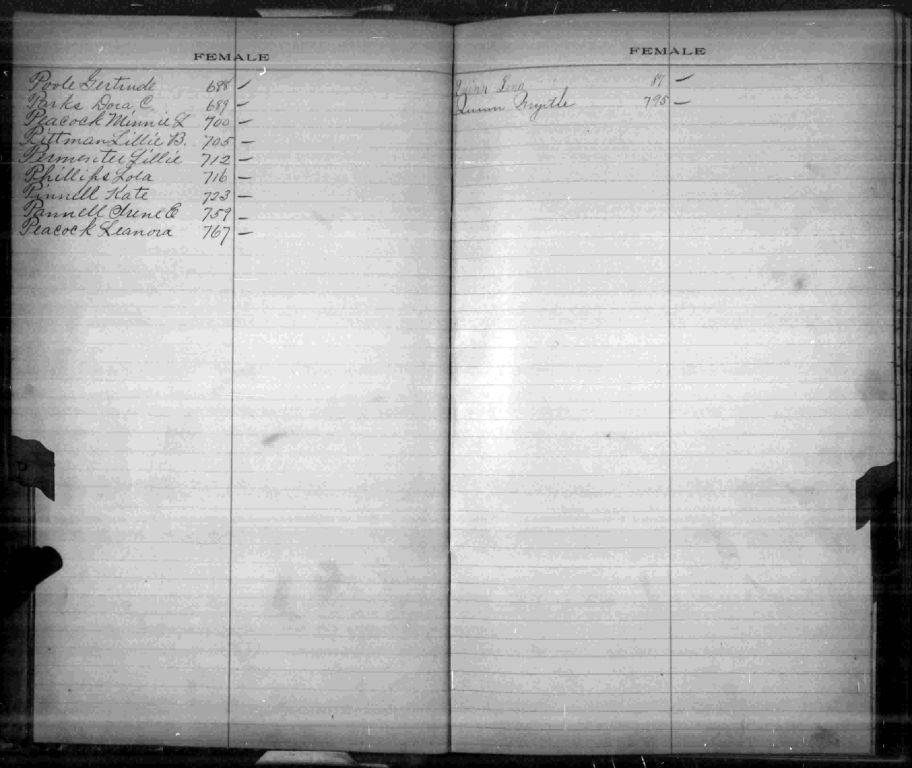 FEMALE
Poole Gertrude 688 -
Parks Dora C 689 -
Peacock Minnie L 700 -
Pittman Lillie B. 705 -
Permenter Lillie 712 -
Phillips Lola 716 -
Pinnell Kate 733 -
Pannell Irene E 759 -
Peacock Leanora 767 -
FEMALE
Quinn Lena 87 -
Quinn Myrtle 795 -